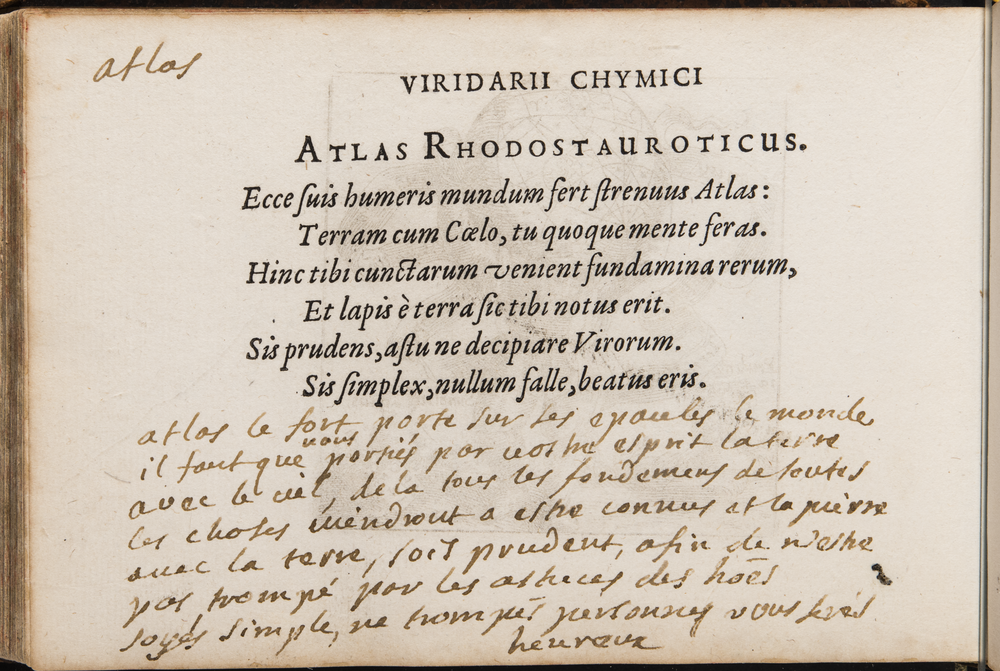 atlas
VIRIDARII CHYMICI
ATLAS RHODOSTAUROTICUS.
Ecce ſuis humeris mundum fert ſtrenuus Atlas:
Terram cum Cœlo, tu quoque mente feras.
Hinc tibi cunctarum venient fundamina rerum,
Et lapis è terra ſic tibi notus erit.
Sis prudens, aſtu ne decipiare Virorum.
Sis ſimplex, nullum falle, beatus eris.
atlas le fort porte sur ses epaules le monde
vous
il faut que portiés par vostre esprit la terre
avec le ciel, de la tous les fondemens de toutes
les choses viendront a estre connus et la pierre
avec la terre, soiés prudent, afin de n'estre
pas trompé par les astuces des hoēs
soyés simple, ne trompés personnes vous serés
heureux